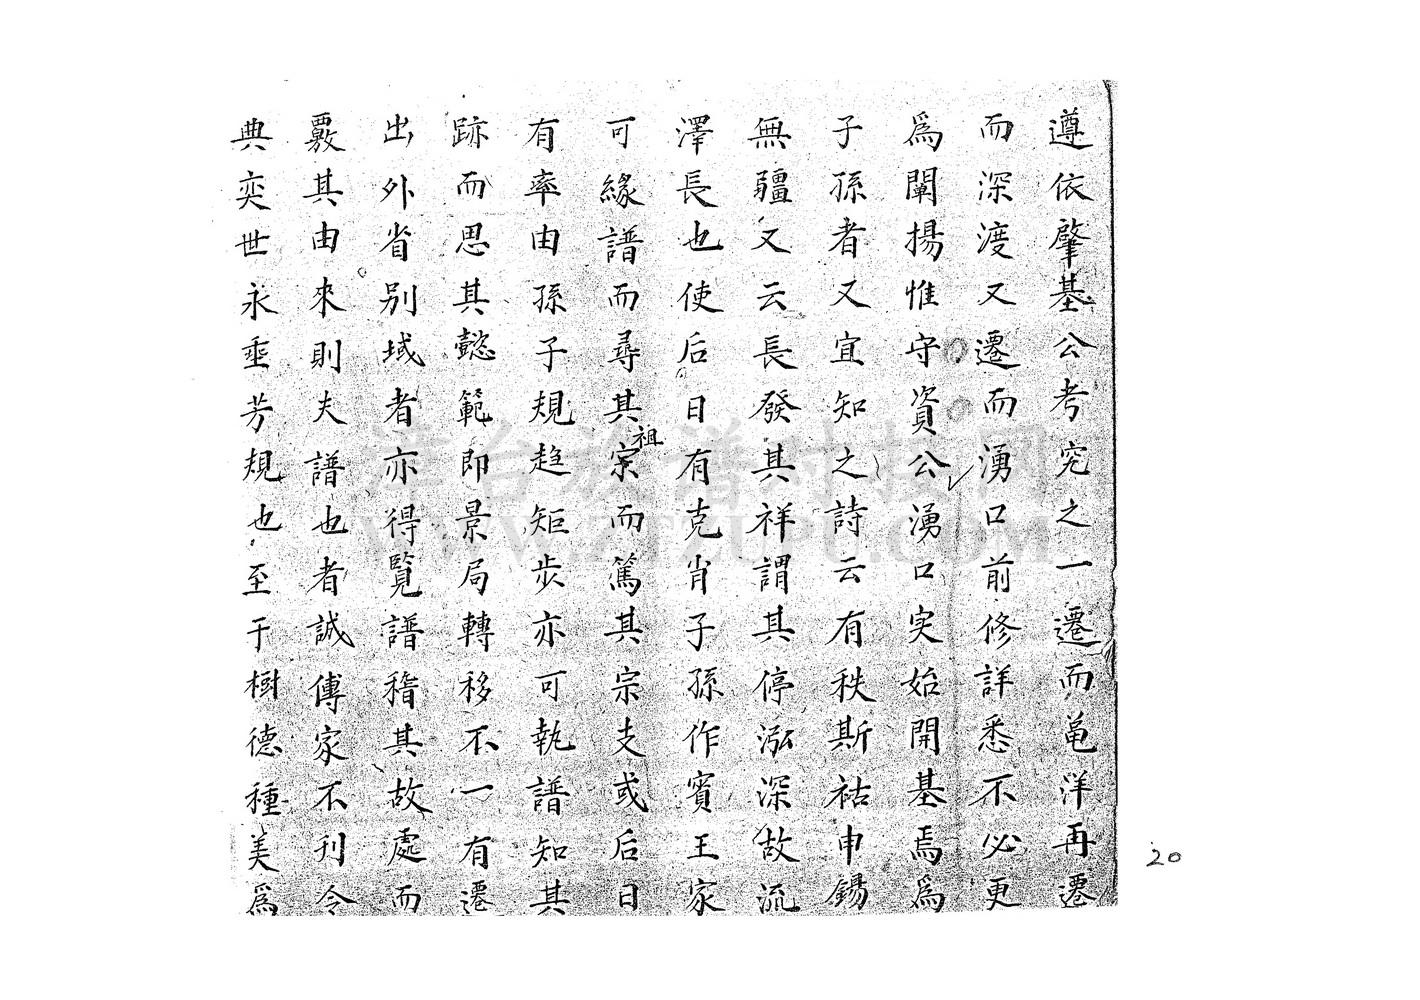 遵依肇基公考究之一遷而黽洋再遷
而深渡又遷而湧口前修詳悉不必更
為闡揚惟守資公湧口实始開基焉為
子孫者又宜知之詩云有秩斯祜申錫
無疆又云長發其祥謂其停泓深故流
澤長也使后日有克肖子孫作賓王家
可緣譜而尋其祖宗而篤其宗支或后日
有率由孫子規趋矩步亦可執譜知其
跡而思其懿範即景局轉移不一有遷
出外省别域者亦得覽譜稽其故處而
覈其由來則夫譜也者誠傳家不刊令
典奕世永垂芳規也至于樹德種美為
漳台族谱对接网
WWW.ZTZUPU.COM
20